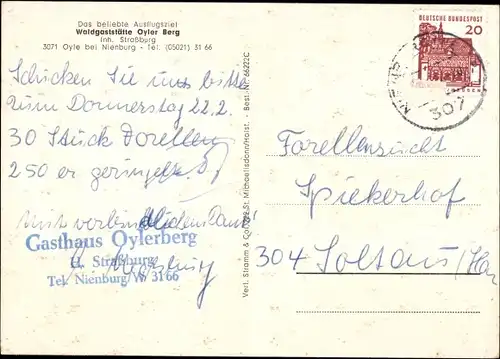 Das beliebte Ausflugsziel
Waldgaststätte Oyler Berg
Inh. Straßburg
3071 Oyle bei Nienburg - Tel. (05021) 31 66
Schicken Sie uns bitte
zum Donnerstag 22.2.
30 Stück Forellen
250 er
Mit verbindlichem Dank!
Gasthaus Oylerberg
H. Straßburg
Tel. Nienburg/W 3166
Verl. Stramm & Co., St. Michaelisdonn/Holst. - Best. Nr. 66222C
DEUTSCHE BUNDESPOST
20
307
Forellenzucht
Spiekerhof
304 Soltau/Han